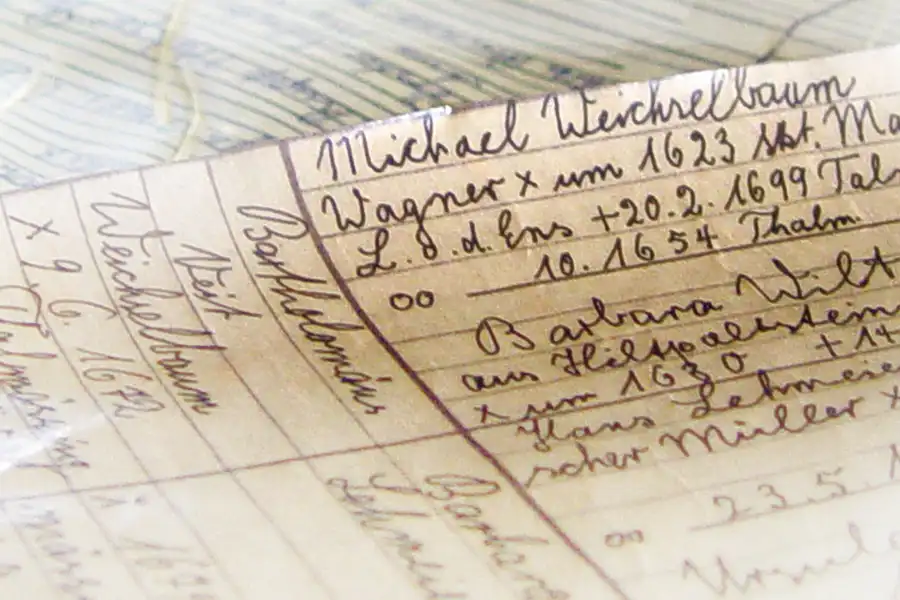 Michael Weichselbaum
Wagner x um 1623 Skt. Ma
L. d. d. Ens +20.2.1699 Tal
10.1654 Thalm
oo
Barbara Wilt
aus Hilpoltstein
x um 1630 +14
Hans Lehmeie
scher Müller x
oo 23.5.1
Ursula
Bartholomäus
Veit
Weichselbaum
x 9 6. 1672
Talmässing
Barbara
Lehmei